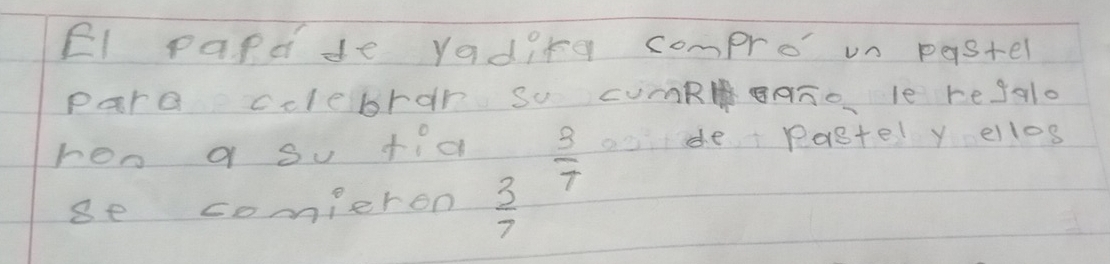 El papá de yadira compró un pastel
para celebrar su cumpleaño le regalo
ron a su tia 3/7 de pastel y ellos
se comieron 3/7